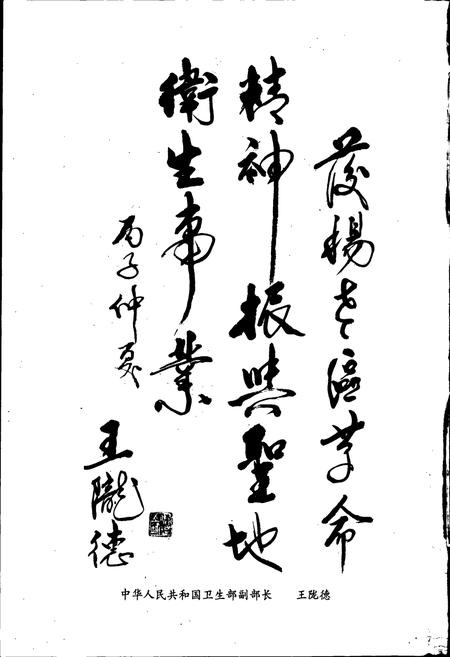 發揚老區革命
精神振興聖地
衛生事業
丙子仲夏
王隴德
中华人民共和国卫生部副部长 王陇德